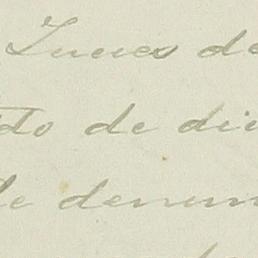 Lunes de
do de di
de denun